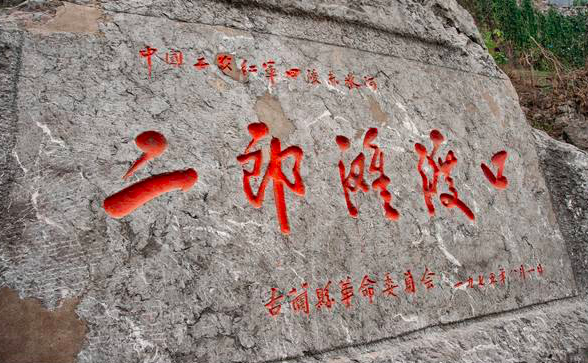 中国工农红軍四渡赤水河
二郎滩渡口
古蔺縣革命委員会 一九七五年八月一日